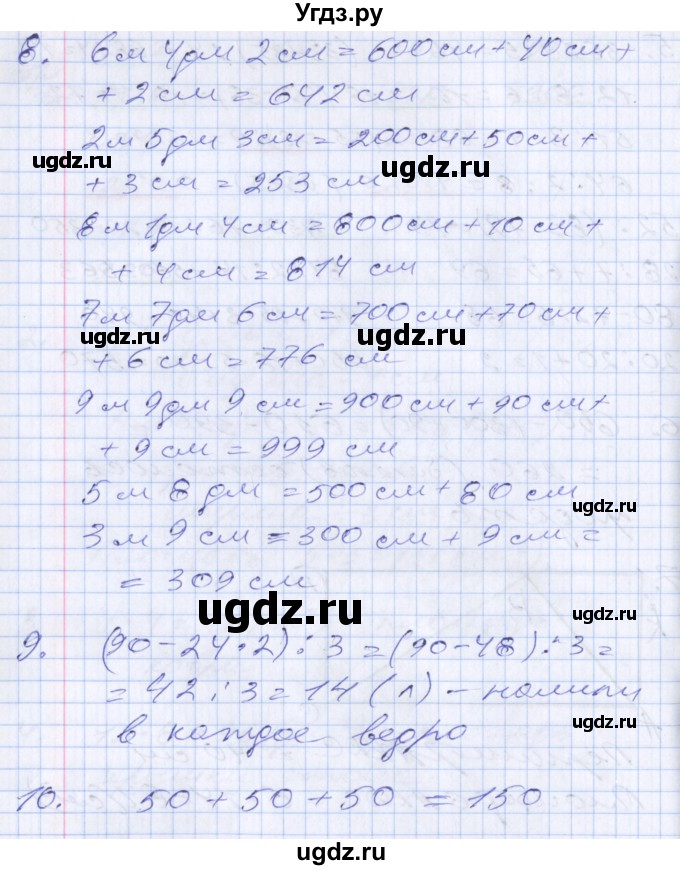 Угдз.ру
8. 6 м 4 дм 2 см = 600 см + 40 см +
+ 2 см = 642 см
2 м 5 дм 3 см = 200 см + 50 см +
ugdz.ru
ugdz.ru
+ 3 см = 253 см
8 м 1 дм 4 см = 800 см + 10 см +
+ 4 см = 814 см
7 м 7 дм 6 см = 700 см + 70 см +
ugdz.ru
ugdz.ru
+ 6 см = 776 см
9 м 9 дм 9 см = 900 см + 90 см +
+ 9 см = 999 см
5 м 8 дм = 500 см + 80 см
ugdz.ru
3 м 9 см = 300 см + 9 см =
= 309 см
ugdz.ru
ugdz.ru
9. (90 - 24 · 2) : 3 = (90 - 48) : 3 =
= 42 : 3 = 14 (л) - налили
ugdz.ru
в каждое ведро
10. 50 + 50 + 50 = 150
ugdz.ru